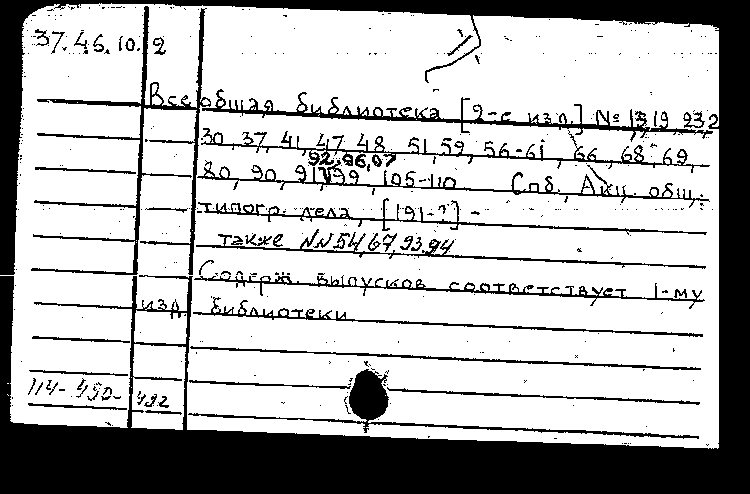 37.46.10.2
Всеобщая библиотека [2-е изд.] № 13,19,23,2
30, 37, 41, 47, 48, 51, 59, 56-61, 66, 68, 69,
92,96,97
80, 90, 91, 99, 105-110 Спб., Акц. общ.
типогр. дела, [191-?] -
также NN 54,67,93,94
Содерж. выпусков соответствует 1-му
изд. библиотеки
114-490-492